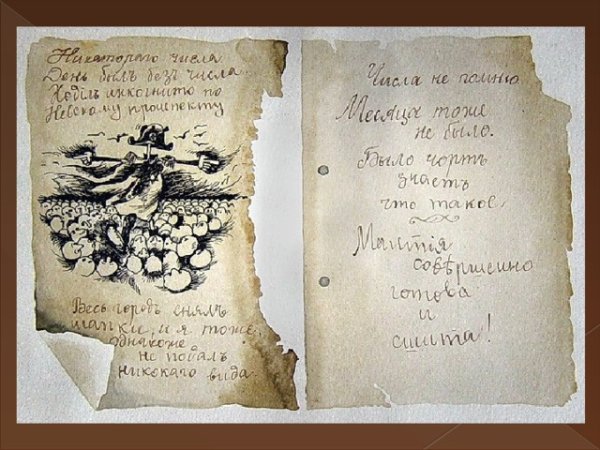 Никотораго числа
День былъ безъ числа
Ходилъ инкогнито по
Невскому проспекту
Весь городъ снялъ
шапки, и я тоже
однакоже
не подалъ
никокаго вида.
Числа не помню
Месяца тоже
не было.
Было чортъ
знаетъ
что такое.
Мантія
совѣршенно
готова
и
сшита!